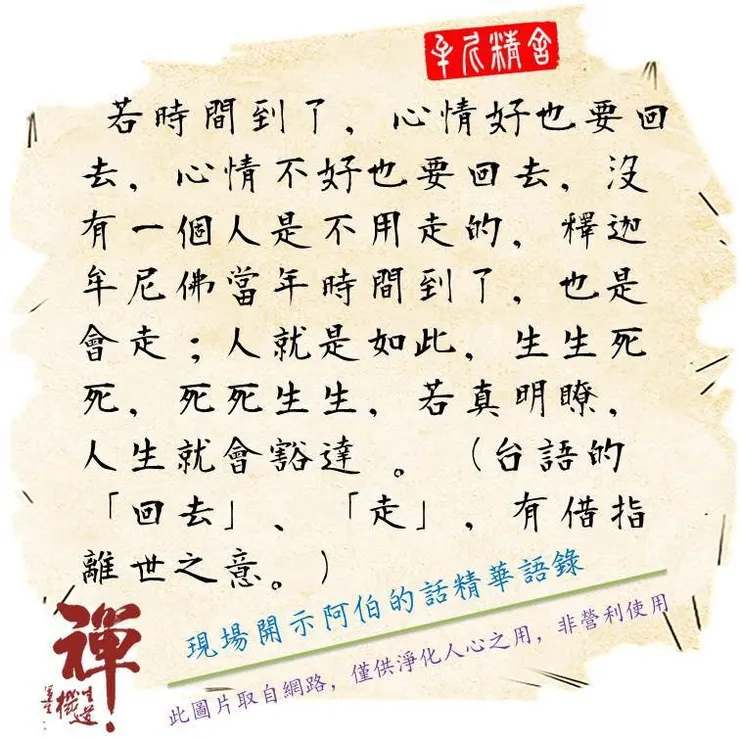 牟尼精舍
若時間到了，心情好也要回
去，心情不好也要回去，沒
有一個人是不用走的，釋迦
牟尼佛當年時間到了，也是
會走；人就是如此，生生死
死，死死生生，若真明瞭，
人生就會豁達。（台語的
「回去」、「走」，有借指
離世之意。）
現場開示阿伯的話精華語錄
此圖片取自網路，僅供淨化人心之用，非營利使用
禪